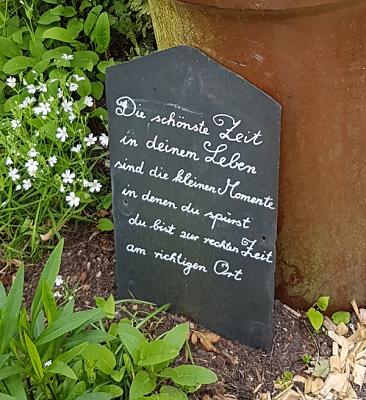 Die schönste Zeit
in deinem Leben
sind die kleinen Momente
in denen du spürst
du bist zur rechten Zeit
am richtigen Ort